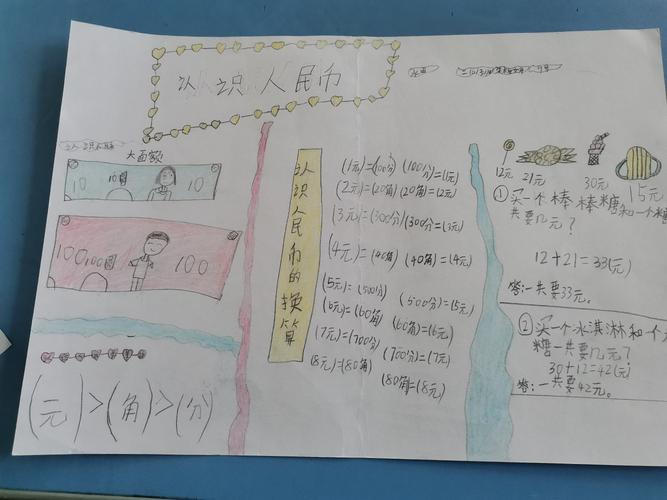 认识人民币
大面额
10 10圆 10
100 100圆 100
(元)>(角)>(分)
认识人民币的换算
(1元)=(100分) (100分)=(1元)
(2元)=(20角) (20角)=(2元)
(3元)=(300分) (300分)=(3元)
(4元)=(40角) (40角)=(4元)
(5元)=(500分) (500分)=(5元)
(6元)=(60角) (60角)=(6元)
(7元)=(700分) (700分)=(7元)
(8元)=(80角) (80角)=(8元)
12元 21元 30元 15元
①买一个棒棒糖和一个糖
一共要几元?
12+21=33(元)
答:一共要33元。
②买一个冰淇淋和一个
糖一共要几元?
30+12=42(元)
答:一共要42元。